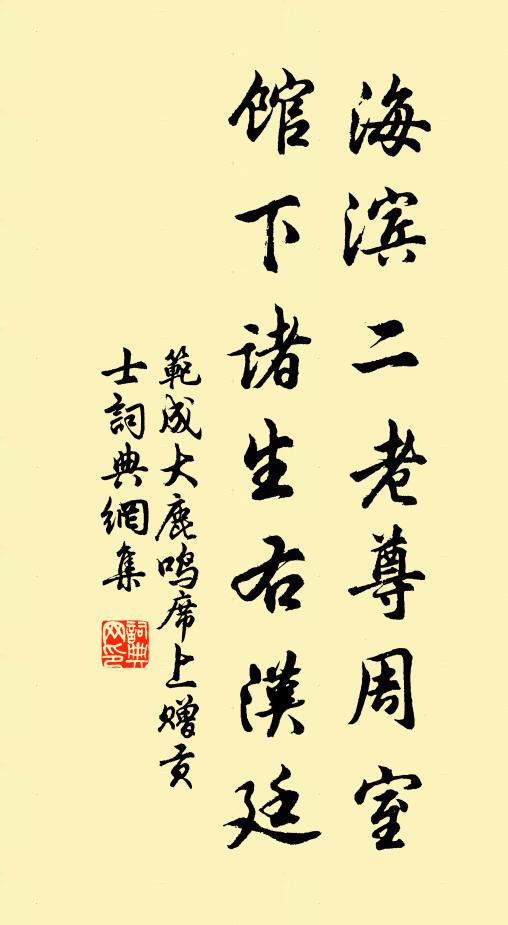 海滨二老尊周室
馆下诸生右汉廷
範成大鹿鸣席上赠贡
士詞典網集
詞典
网印